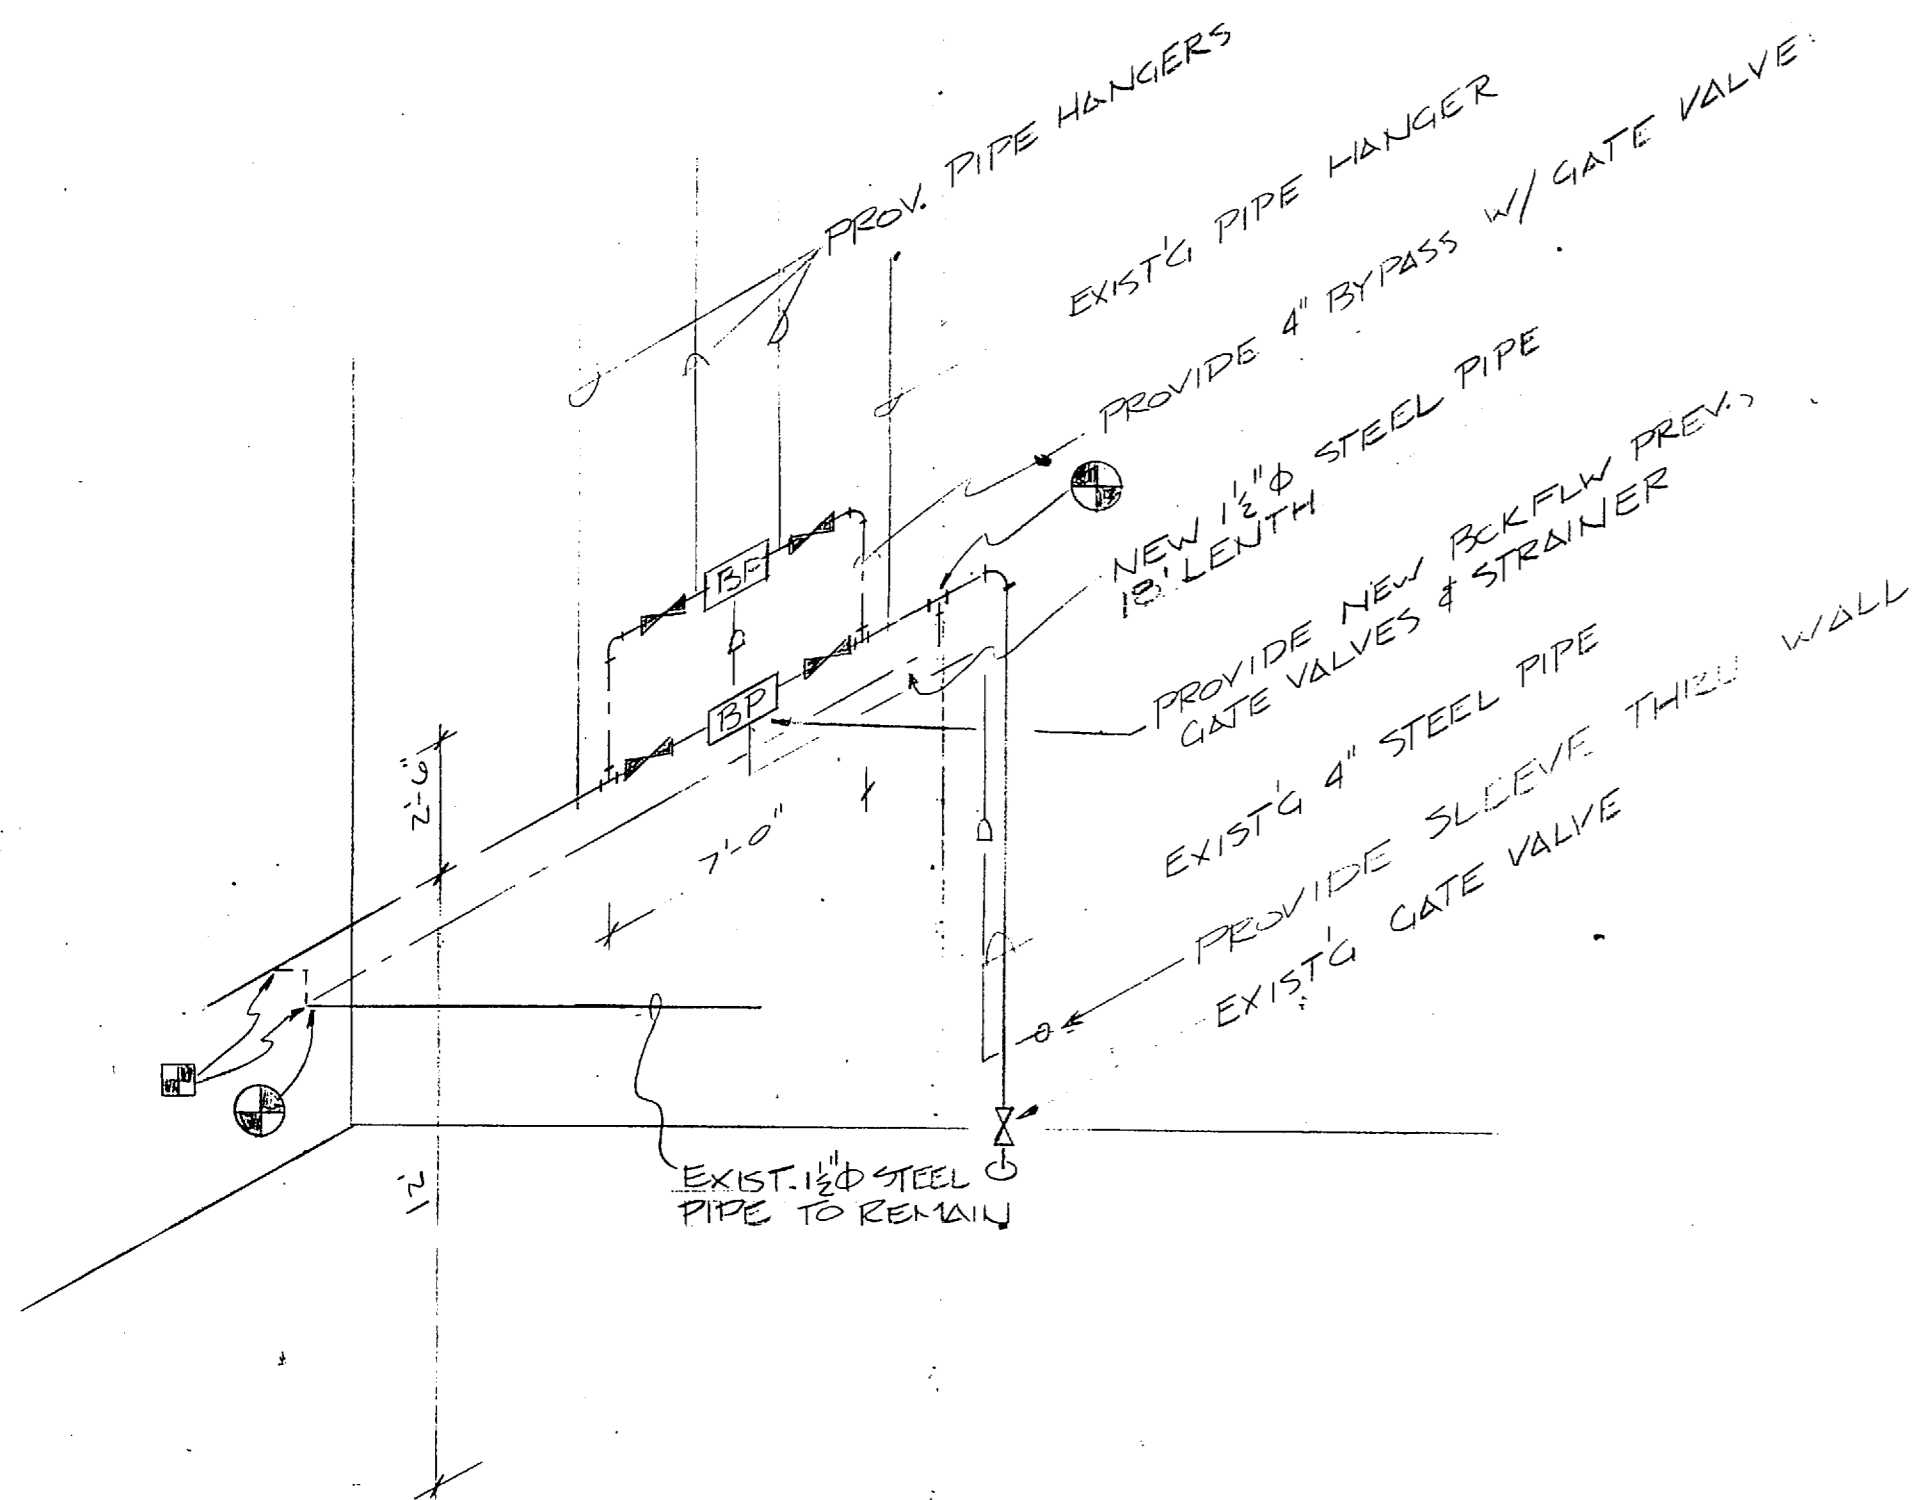 PROV. PIPE HANGERS
EXIST'G PIPE HANGER
PROVIDE 4" BYPASS W/ GATE VALVE
NEW 1½"Φ STEEL PIPE
18' LENTH
PROVIDE NEW BCKFLW PREV.,
GATE VALVES & STRAINER
EXIST'G 4" STEEL PIPE
PROVIDE SLEEVE THRU WALL
EXIST'G GATE VALVE
BF
BP
2'-6"
7'-0"
12'
EXIST. 1½"Φ STEEL
PIPE TO REMAIN